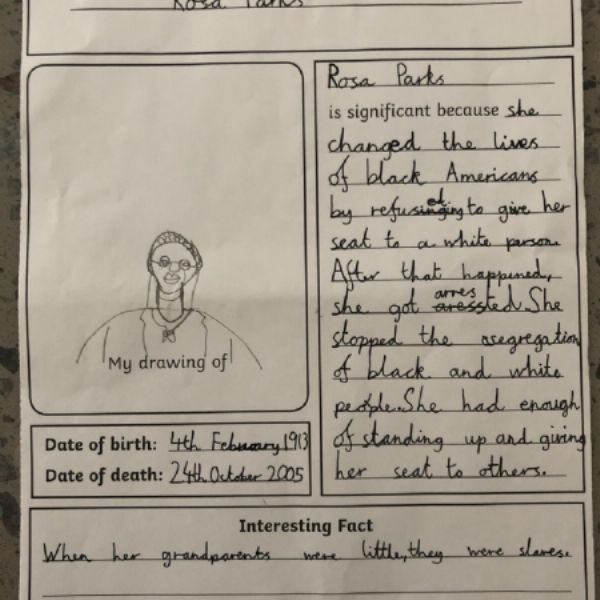 Rosa Parks
Rosa Parks
is significant because she
changed the lives
of black Americans
by refusing to give her
seat to a white person.
After that happened,
she got arrested. She
stopped the segregation
of black and white
people. She had enough
of standing up and giving
her seat to others.
My drawing of
Date of birth: 4th February 1913
Date of death: 24th October 2005
Interesting Fact
When her grandparents were little, they were slaves.